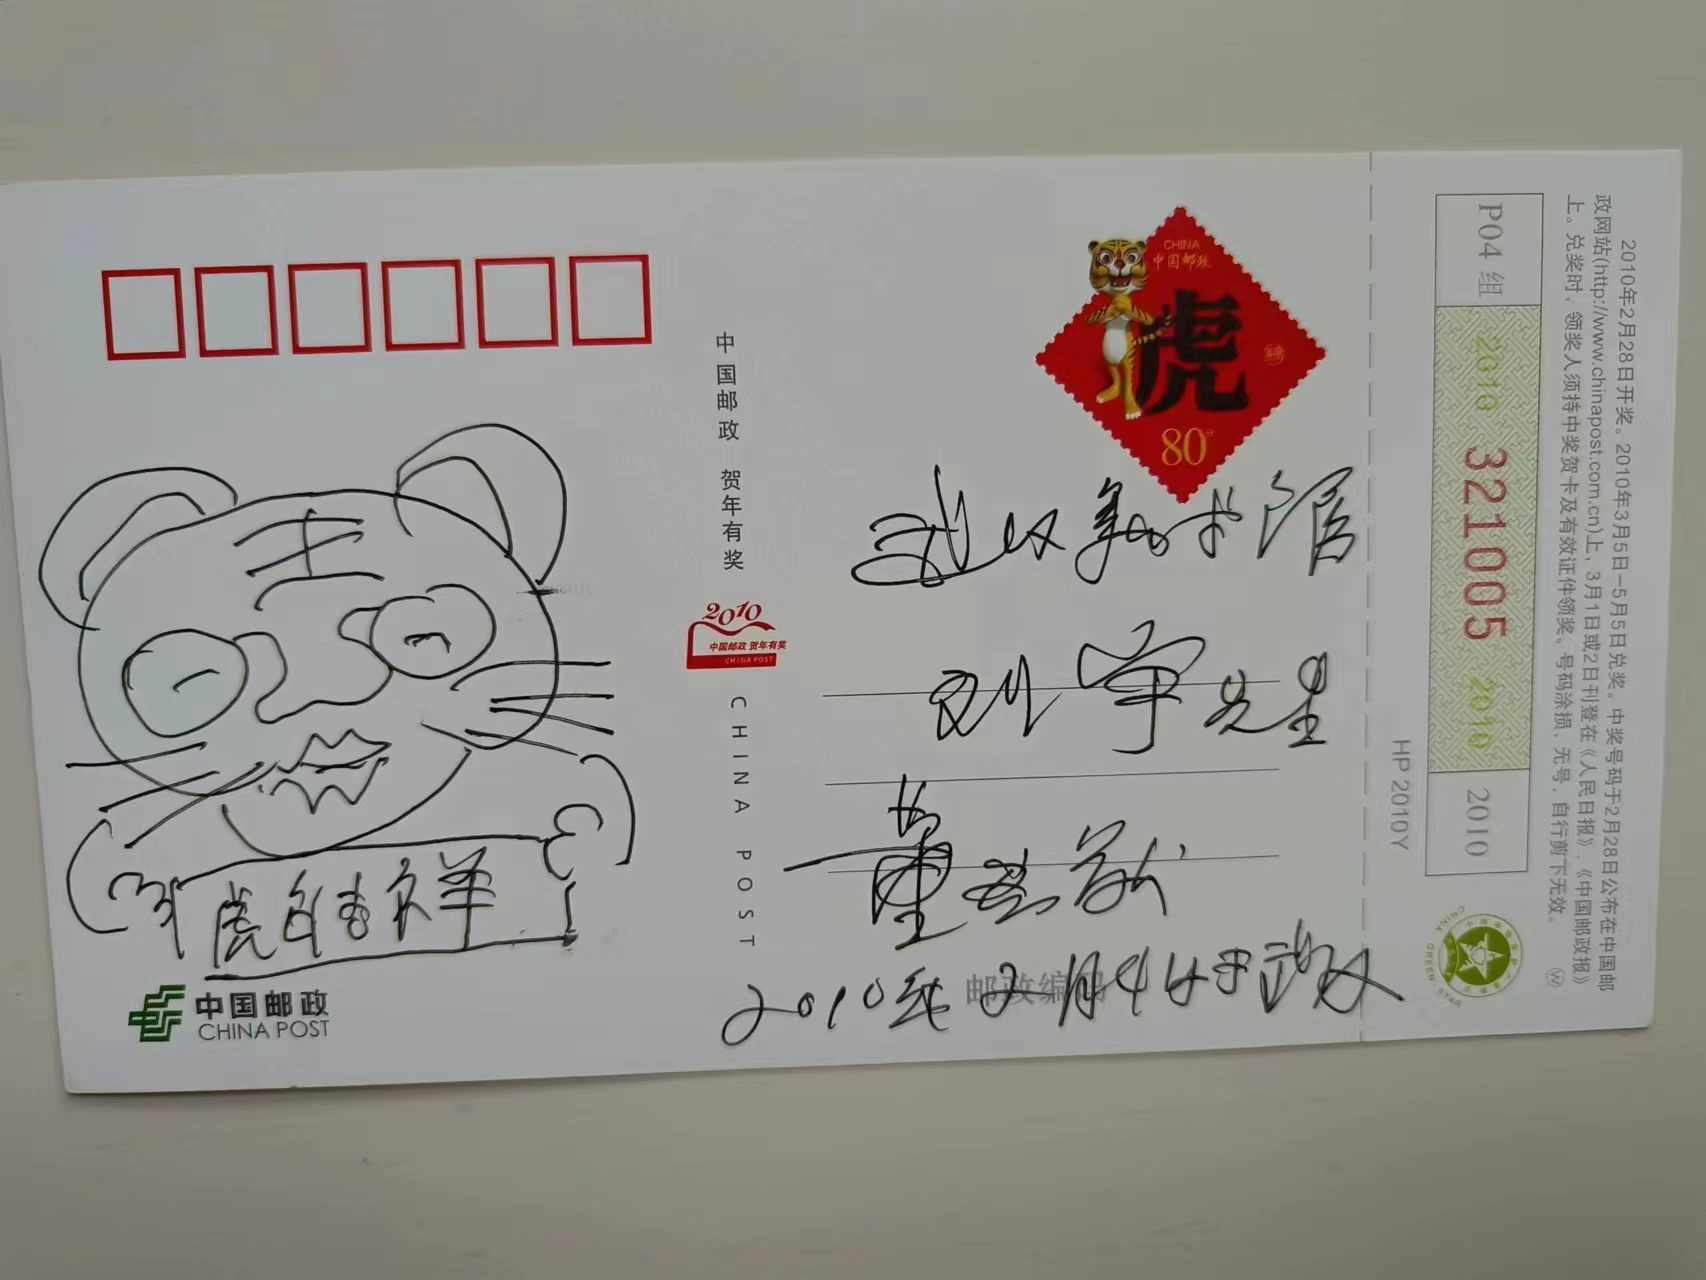 CHINA
中国邮政
虎
80分
中国邮政 贺年有奖
2010
中国邮政 贺年有奖
CHINA POST
CHINA POST
武汉美术馆
刘宇先生
董
2010年2月4日于武汉
邮政编码
虎年吉祥
中国邮政
CHINA POST
HP 2010Y
P04 组
2010 321005 2010
2010
2010年2月28日开奖。2010年3月5日-5月5日兑奖。中奖号码于2月28日公布在中国邮
政网站(http://www.chinapost.com.cn)上，3月1日或2日刊登在《人民日报》、《中国邮政报》
上。兑奖时，领奖人须持中奖贺卡及有效证件领奖。号码涂损、无号、自行剪下无效。
CHINA GREEN STAR